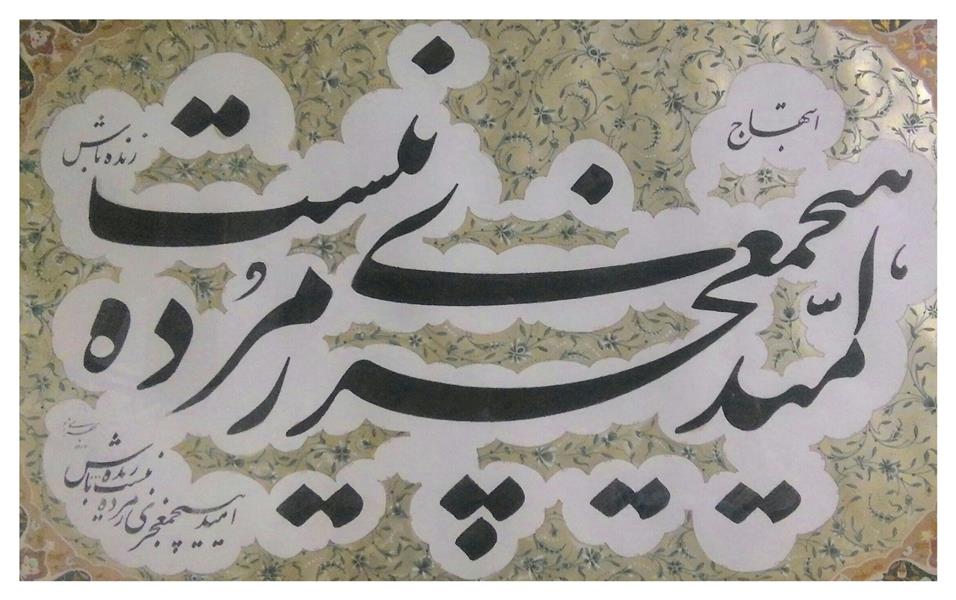 ابتهاج
امّید هیچ معجزی ز مُرده نیست
زنده باش
امید هیچ معجزی ز مرده نیست زنده باش